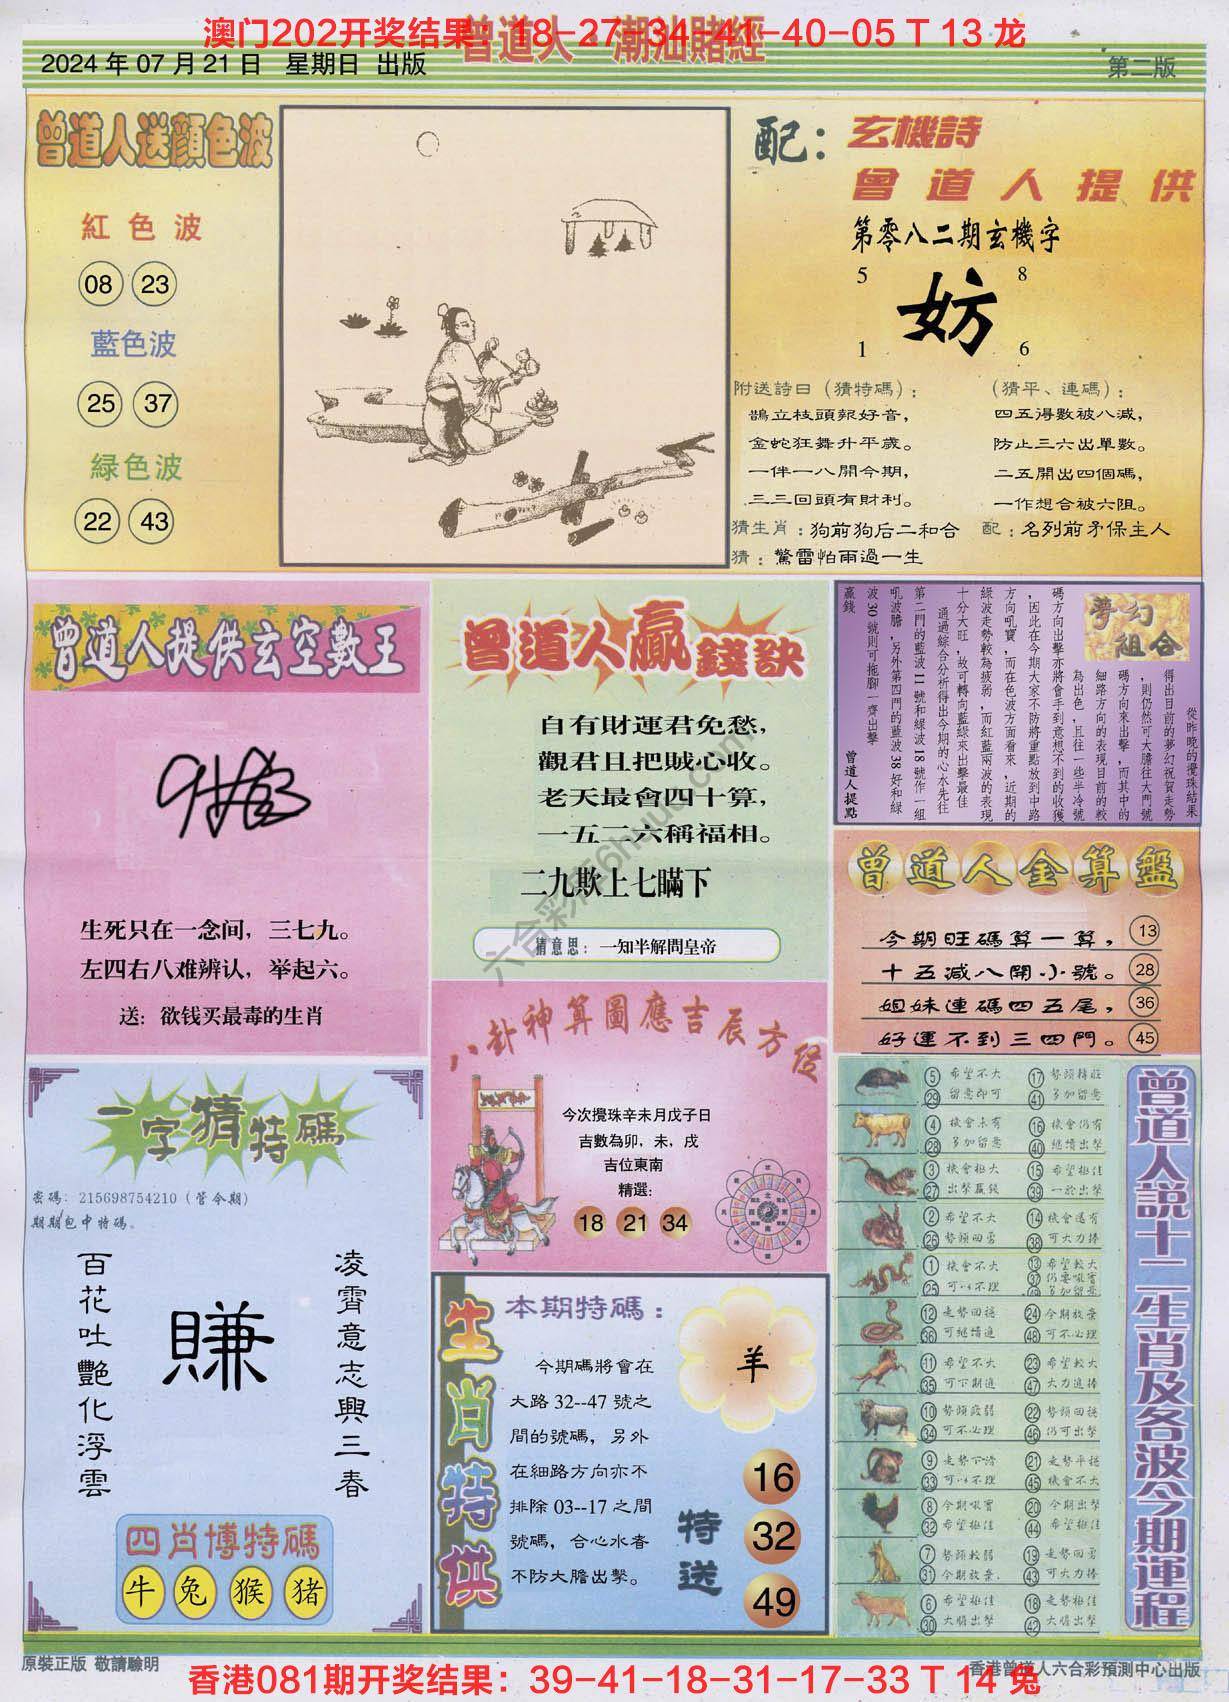 澳门202开奖结果：18-27-34-41-40-05 T 13 龙
曾道人 潮汕賭經
2024 年 07 月 21 日 星期日 出版
第二版
曾道人送顏色波
紅色波
08 23
藍色波
25 37
緑色波
22 43
配：玄機詩
曾道人提供
第零八二期玄機字
5 8
妨
1 6
附送詩曰（猜特碼）：
鵲立枝頭報好音，
金蛇狂舞升平歲。
一伴一八開今期，
三三回頭有財利。
（猜平、連碼）：
四五得數被八減，
防止三六出單數。
二五開出四個碼，
一作想合被六阻。
猜生肖：狗前狗后二和合 配：名列前矛保主人
猜：驚雷怕雨過一生
曾道人提供玄空數王
生死只在一念间，三七九。
左四右八难辨认，举起六。
送：欲钱买最毒的生肖
曾道人贏錢訣
自有財運君免愁，
觀君且把賊心收。
老天最會四十算，
一五二六稱福相。
二九欺上七瞞下
猜意思：一知半解問皇帝
夢幻
組合
從昨晚的攪珠結果
得出目前的夢幻祝賀走勢
，則仍然可大膽往大門號
碼方向來出擊，而其中的
細路方向的表現目前的較
為出色，且往一些半冷號
碼方向出擊亦將會手到意想不到的收獲
，因此在今期大家不防將重點放到中路
方向吼寶，而在色波方面看來，近期的
綠波走勢較為疲弱，而紅藍兩波的表現
十分大旺，故可轉向藍綠來出擊最佳
通過綜合分析得出今期的心水先往
第二門的藍波 11 號和綠波 18 號作一組
吼波膽，另外第四門的藍波 38 好和綠
波 30 號則可拖腳一齊出擊
贏錢
曾道人提點
曾道人金算盤
今期旺碼算一算， 13
十五減八開小號。 28
姐妹連碼四五尾， 36
好運不到三四門。 45
八卦神算圖應吉辰方位
今次攪珠辛未月戊子日
吉數為卯，未，戌
吉位東南
精選：
18 21 34
一字猜特碼
密碼：215698754210（管今期）
期期包中特碼。
百花吐艷化浮雲
賺
凌霄意志興三春
四肖博特碼
牛 兔 猴 猪
生肖特供
本期特碼：
羊
今期碼將會在
大路 32--47 號之
間的號碼，另外
在細路方向亦不
排除 03--17 之間
號碼，合心水者
不防大膽出擊。
特送
16
32
49
曾道人説十二生肖及各波今期運程
5 希望不大 17 勢頭轉旺
29 留意即可 41 多加留意
4 機會未有 16 機會仍有
28 多加留意 40 繼續出擊
3 機會極大 15 希望極佳
27 出擊贏錢 39 一於出擊
2 希望不大 14 機會還有
26 勢頭回勇 38 可大力捧
1 機會不大 13 希望較大
25 可以不理
12 走勢回穩 24 今期放棄
36 可繼續追 48 可不必理
11 希望不大 23 希望較大
35 可下期追 47 大力追捧
10 勢頭疲弱 22 勢頭回穩
34 可不必理 46 仍可出擊
9 走勢下滑 21 走勢平穩
33 可以不理 45 機會不大
8 今期吼寶 20 今期出擊
32 希望極佳 44 希望極佳
7 勢頭較弱 19 走勢回勇
31 今期放棄 43 可大力捧
6 希望極佳 18 走勢極佳
30 大膽出擊 42 大膽出擊
原裝正版 敬請驗明
香港曾道人六合彩預測中心出版
香港081期开奖结果：39-41-18-31-17-33 T 14 兔